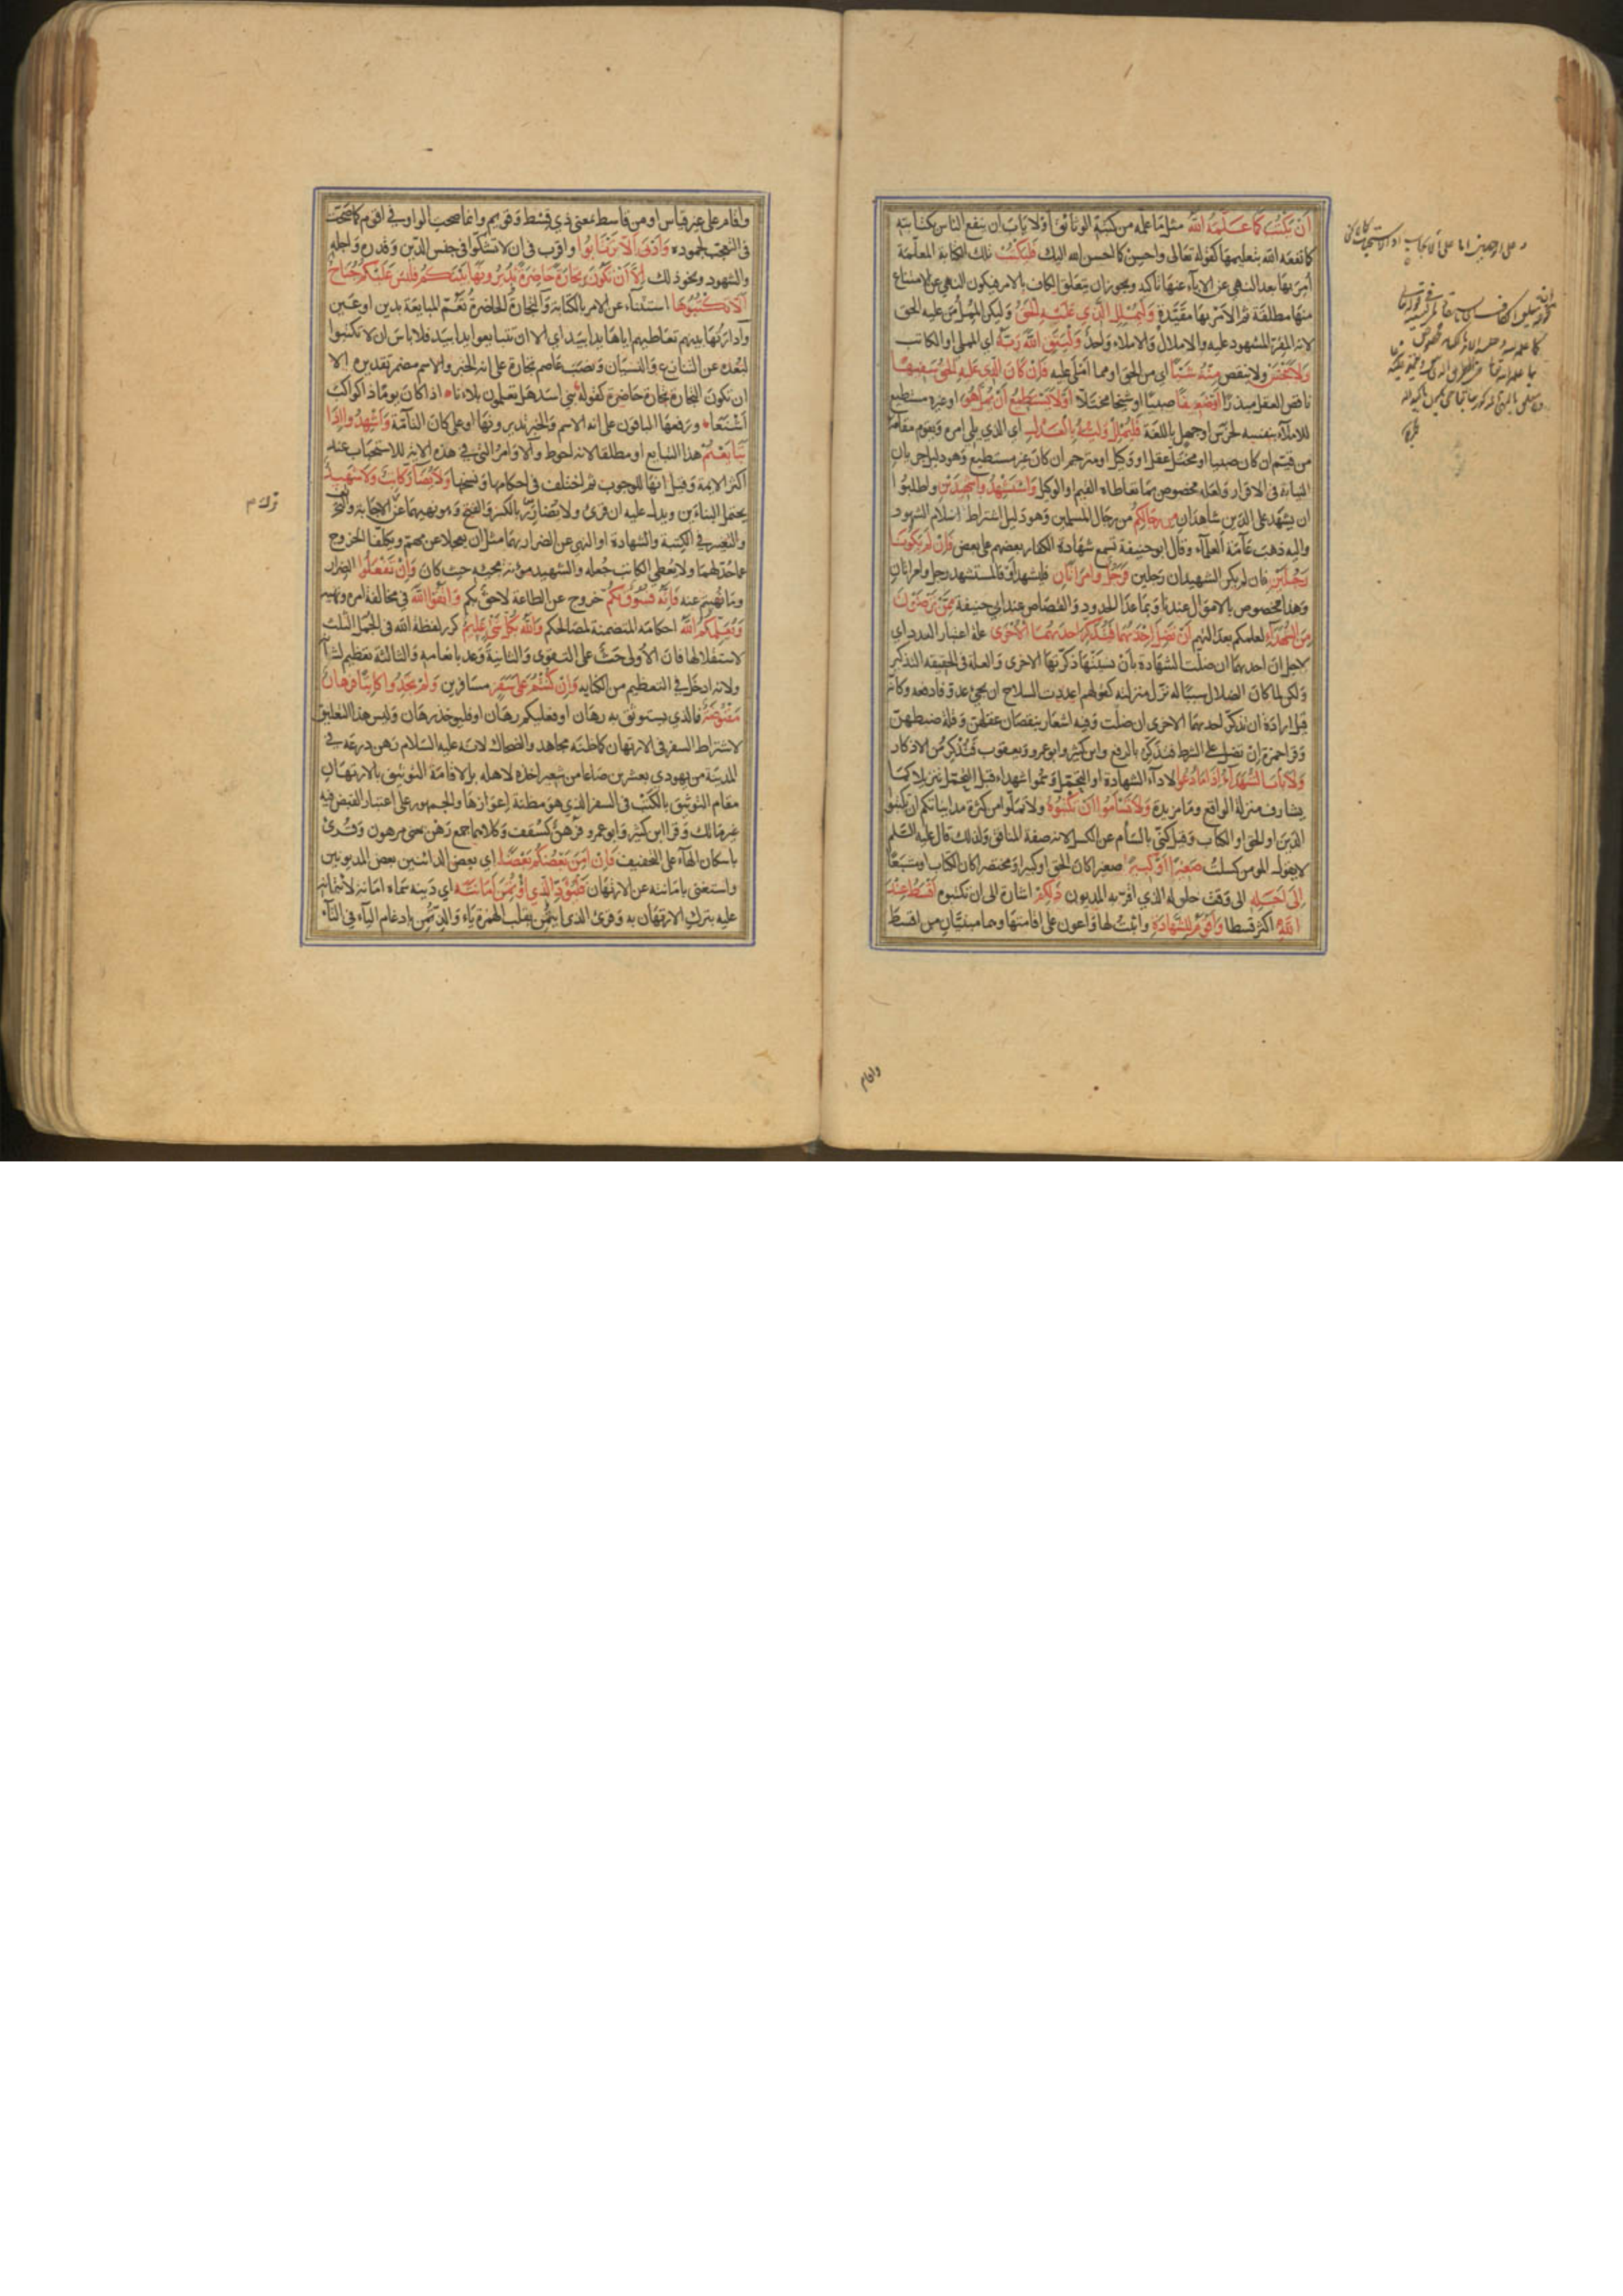 أَنْ يَكْتُبَ كَمَا عَلَّمَهُ اللَّهُ مثل ما علمه من كتبة الوثائق أو لا يأب ان ينفع الناس بكتابته
كما نفعه الله بتعليمها كقوله تعالى واحسن كما احسن الله اليك فَلْيَكْتُبْ تلك الكتابة المعلمة
أمر بها بعد النهي عن الاباء عنها تأكيد ويجوز ان يتعلق الكاف بالامر فيكون النهي عن الامتناع
منها مطلقة ثم الامر بها مقيدة وَلْيُمْلِلِ الَّذِي عَلَيْهِ الْحَقُّ وليكن المملل من عليه الحق
لانه المقر المشهود عليه والاملال والاملاء واحد وَلْيَتَّقِ اللَّهَ رَبَّهُ اي المملي او الكاتب
وَلَا يَبْخَسْ ولا ينقص مِنْهُ شَيْئًا اي من الحق او مما املى عليه فَإِنْ كَانَ الَّذِي عَلَيْهِ الْحَقُّ سَفِيهًا
ناقص العقل مبذرا أَوْ ضَعِيفًا صبيا او شيخا مختلا أَوْ لَا يَسْتَطِيعُ أَنْ يُمِلَّ هُوَ او غير مستطيع
للاملاء بنفسه لخرس او جهل باللغة فَلْيُمْلِلْ وَلِيُّهُ بِالْعَدْلِ اي الذي يلي امره ويقوم مقامه
من قيم ان كان صبيا او مختل عقل او وكيل او مترجم ان كان غير مستطيع وهو دليل جريان
النيابة في الاقرار ولعله مخصوص بما تعاطاه القيم او الوكيل وَاسْتَشْهِدُوا شَهِيدَيْنِ واطلبوا
ان يشهد على الدين شاهدان مِنْ رِجَالِكُمْ من رجال المسلمين وهو دليل اشتراط اسلام الشهود
واليه ذهب عامة العلماء وقال ابو حنيفة تسمع شهادة الكفار بعضهم على بعض فَإِنْ لَمْ يَكُونَا
رَجُلَيْنِ فان لم يكن الشهيدان رجلين فَرَجُلٌ وَامْرَأَتَانِ فليشهد او فالمستشهد رجل وامراتان
وهذا مخصوص بالاموال عندنا وبما عدا الحدود والقصاص عند ابي حنيفة مِمَّنْ تَرْضَوْنَ
مِنَ الشُّهَدَاءِ لعلمكم بعدالتهم أَنْ تَضِلَّ إِحْدَاهُمَا فَتُذَكِّرَ إِحْدَاهُمَا الْأُخْرَى علة اعتبار العدد اي
لاجل ان احديهما ان ضلت الشهادة بان نسيتها ذكرتها الاخرى والعلة في الحقيقه التذكير
ولكن لما كان الضلال سببا له نزل منزلته كقولهم اعددت السلاح ان يجئ عدو فادفعه وكانه
قيل ارادة ان تذكر احديهما الاخرى ان ضلت وفيه اشعار بنقصان عقلهن وقلة ضبطهن
وقرا حمزة إن تضل على الشرط فتذكر بالرفع وابن كثير وابو عمرو ويعقوب فتُذْكِرَ من الاذكار
وَلَا يَأْبَ الشُّهَدَاءُ إِذَا مَا دُعُوا لاداء الشهادة او التحمل وسموا شهداء قبل التحمل تنزيلا لما
يشارف منزلة الواقع وما مزيدة وَلَا تَسْأَمُوا أَنْ تَكْتُبُوهُ ولا تملوا من كثرة مدايناتكم ان تكتبوا
الدين او الحق او الكتاب وقيل كنى بالسأم عن الكسل لانه صفة المنافق ولذلك قال عليه السلم
لا يقول المومن كسلت صَغِيرًا أَوْ كَبِيرًا صغيرا كان الحق او كبيرا ومختصرا كان الكتاب او مشبعا
إِلَى أَجَلِهِ الى وقت حلوله الذي اقر به المديون ذَلِكُمْ اشارة الى ان تكتبوه أَقْسَطُ عِنْدَ
اللَّهِ اكثر قسطا وَأَقْوَمُ لِلشَّهَادَةِ واثبت لها واعون على اقامتها وهما مبنيان من اقسط
وافام
واقام على غير قياس او من قاسط بمعنى ذي قسط وقويم وانما صحت الواو في اقوم كما صحت
في التعجب لجموده وَأَدْنَى أَلَّا تَرْتَابُوا واقرب في ان لا تشكوا في جنس الدين وقدره واجله
والشهود ونحو ذلك إِلَّا أَنْ تَكُونَ تِجَارَةً حَاضِرَةً تُدِيرُونَهَا بَيْنَكُمْ فَلَيْسَ عَلَيْكُمْ جُنَاحٌ
أَلَّا تَكْتُبُوهَا استثناء عن الامر بالكتابة والتجارة الحاضرة تعم المبايعة بدين او عين
وادارتها بينهم تعاطيهم اياها يدا بيد اي الا ان تتبايعوا يدا بيد فلا باس ان لا تكتبوا
لبعده عن التنازع والنسيان ونصب عاصم تجارة على انه الخبر والاسم مضمر تقديره الا
ان تكون التجارة تجارة حاضرة كقوله بني اسد هل تعلمون بلاءنا اذا كان يوما ذا كواكب
اشنعا ورفعها الباقون على انه الاسم والخبر تديرونها او على كان التامة وَأَشْهِدُوا إِذَا
تَبَايَعْتُمْ هذا التبايع او مطلقا لانه احوط والاوامر التي في هذه الاية للاستحباب عند
اكثر الايمة وقيل انها للوجوب ثم اختلف في احكامها ونسخها وَلَا يُضَارَّ كَاتِبٌ وَلَا شَهِيدٌ
يحتمل البنائين ويدل عليه ان قرئ ولا يضارر بالكسر والفتح وهو نهيهما عن الاجابة والتحريف
والتغيير في الكتبة والشهادة او النهي عن الضرار بهما مثل ان يعجلا عن مهم ويكلفا الخروج
عما حد لهما ولا يعطي الكاتب جعله والشهيد مؤنة مجيئه حيث كان وَإِنْ تَفْعَلُوا الضرار
وما نهيتم عنه فَإِنَّهُ فُسُوقٌ بِكُمْ خروج عن الطاعة لاحق بكم وَاتَّقُوا اللَّهَ في مخالفة امره ونهيه
وَيُعَلِّمُكُمُ اللَّهُ احكامه المتضمنة لمصالحكم وَاللَّهُ بِكُلِّ شَيْءٍ عَلِيمٌ كرر لفظة الله في الجمل الثلث
لاستقلالها فان الاولى حث على التقوى والثانية وعد بانعامه والثالثة تعظيم لشأنه
ولانه ادخل في التعظيم من الكنايه وَإِنْ كُنْتُمْ عَلَى سَفَرٍ مسافرين وَلَمْ تَجِدُوا كَاتِبًا فَرِهَانٌ
مَقْبُوضَةٌ فالذي يستوثق به رهان او فعليكم رهان او فليوخذ رهان وليس هذا التعليق
لاشتراط السفر في الارتهان كما ظنه مجاهد والضحاك لانه عليه السلام رهن درعه في
المدينة من يهودي بعشرين صاعا من شعير اخذه لاهله بل لاقامة التوثيق بالارتهان
مقام التوثيق بالكتب في السفر الذي هو مظنة إعوازها والجمهور على اعتبار القبض فيه
غير مالك وقرا ابن كثير وابو عمرو فرهن كسقف وكلاهما جمع رهن بمعنى مرهون وقرئ
باسكان الهاء على التخفيف فَإِنْ أَمِنَ بَعْضُكُمْ بَعْضًا اي بعض الدائنين بعض المديونين
واستغنى بامانته عن الارتهان فَلْيُؤَدِّ الَّذِي اؤْتُمِنَ أَمَانَتَهُ اي دينه سماه امانة لائتمانه
عليه بترك الارتهان به وقرئ الذي ايتمن بقلب الهمزة ياء والذ تمن بادغام الياء في التاء